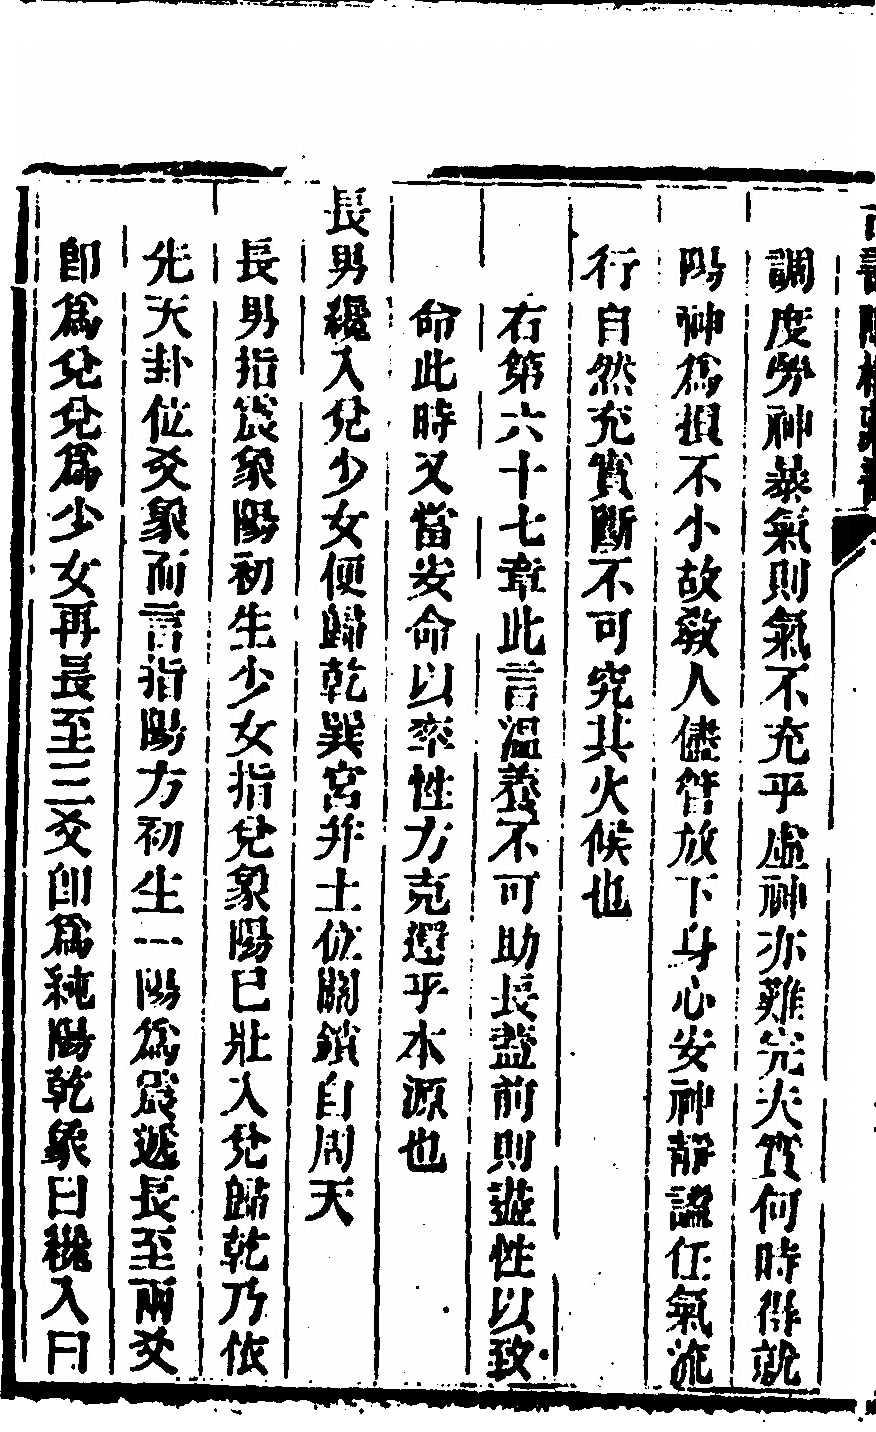 調度勞神暴氣則氣不充乎虛神亦難完夫質何時得就
陽神為損不小故敎人儘管放下身心安神靜謐任氣流
行自然充實斷不可究其火候也
右第六十七章此言溫養不可助長蓋前則盡性以致
命此時又當安命以率性方克還乎本源也
長男纔入兌少女便歸乾巽宮并土位關鎖自周天
長男指震象陽初生少女指兌象陽已壯入兌歸乾乃依
先天卦位爻象而言指陽方初生一陽為震遞長至兩爻
卽為兌兌為少女再長至三爻卽為純陽乾象曰纔入曰